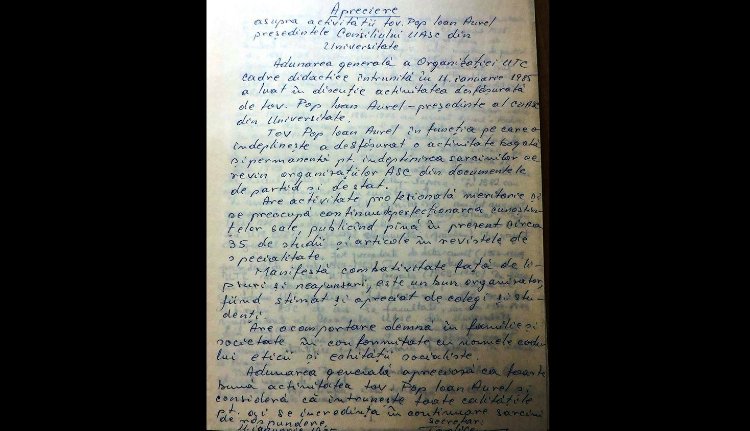 Apreciere
asupra activității tov. Pop Ioan Aurel
președintele Consiliului UASC din
Universitate
Adunarea generală a Organizației UTC
cadre didactice întrunită în 11 ianuarie 1985
a luat în discuție activitatea desfășurată
de tov. Pop Ioan Aurel - președinte al CUASC
din Universitate.
Tov. Pop Ioan Aurel în funcția pe care o
îndeplinește a desfășurat o activitate bogată
și permanentă pt. îndeplinirea sarcinilor ce
revin organizațiilor ASC din documentele
de partid și de stat.
Are activitate profesională meritorie și
se preocupă continuu perfecționarea cunoștin-
țelor sale, publicînd pînă în prezent circa
35 de studii și articole în revistele de
specialitate.
Manifestă combativitate față de li-
psuri și neajunsuri, este un bun organizator,
fiind stimat și apreciat de colegi și stu-
denți.
Are o comportare demnă în familie și
societate în conformitate cu normele codu-
lui eticii și echității socialiste.
Adunarea generală apreciază ca foarte
bună activitatea tov. Pop Ioan Aurel și
consideră că întrunește toate calitățile
pt. a i se încredința în continuare sarcini
de răspundere.
ianuarie 1985 Secretar,